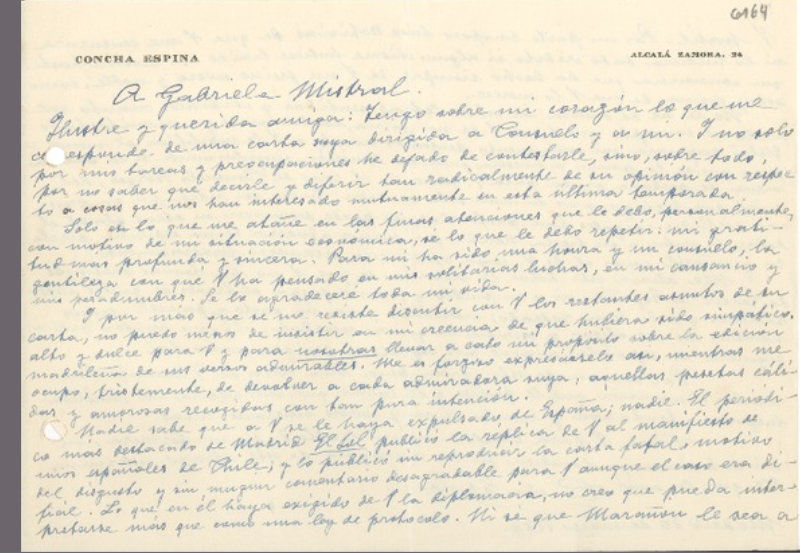 6164
CONCHA ESPINA
ALCALÁ ZAMORA, 24
A Gabriela Mistral.
Ilustre y querida amiga: Tengo sobre mi corazón lo que me
corresponde de una carta suya dirigida a Consuelo y a mi. Y no solo
por mis tareas y preocupaciones he dejado de contestarle, sino, sobre todo,
por no saber qué decirle y diferir tan radicalmente de su opinión con respec-
to a cosas que nos han interesado mutuamente en esta última temporada.
Solo en lo que me atañe en las finas atenciones que le debo, personalmente,
con motivo de mi situación económica, sé lo que le debo repetir: mi grati-
tud mas profunda y sincera. Para mi ha sido una honra y un consuelo, la
gentileza con qué V ha pensado en mis solitarias luchas, en mi cansancio y
mis pesadumbres. Se lo agradeceré toda mi vida.
Y por mas que se me resiste discutir con V los restantes asuntos de su
carta, no puedo menos de insistir en mi creencia de que hubiera sido simpático,
alto y dulce para V y para nosotras llevar a cabo mi propósito sobre la edición
madrileña de sus versos admirables. Me es forzoso expresárselo así, mientras me
ocupo, tristemente, de devolver a cada admiradora suya, aquellas pesetas cáli-
das y amorosas recogidas con tan pura intención.
Nadie sabe que a V se le haya expulsado de España; nadie. El periódi-
co más destacado de Madrid El Sol publicó la réplica de V al manifiesto de
unos españoles de Chile; y lo publicó sin reproducir la carta fatal, motivo
del disgusto y sin ningun comentario desagradable para V aunque el caso era di-
ficil. Lo que en él haya exigido de V la diplomacia, no creo que pueda inter-
pretarse más que como una ley de protocolo. Ni sé que Marañon le sea a